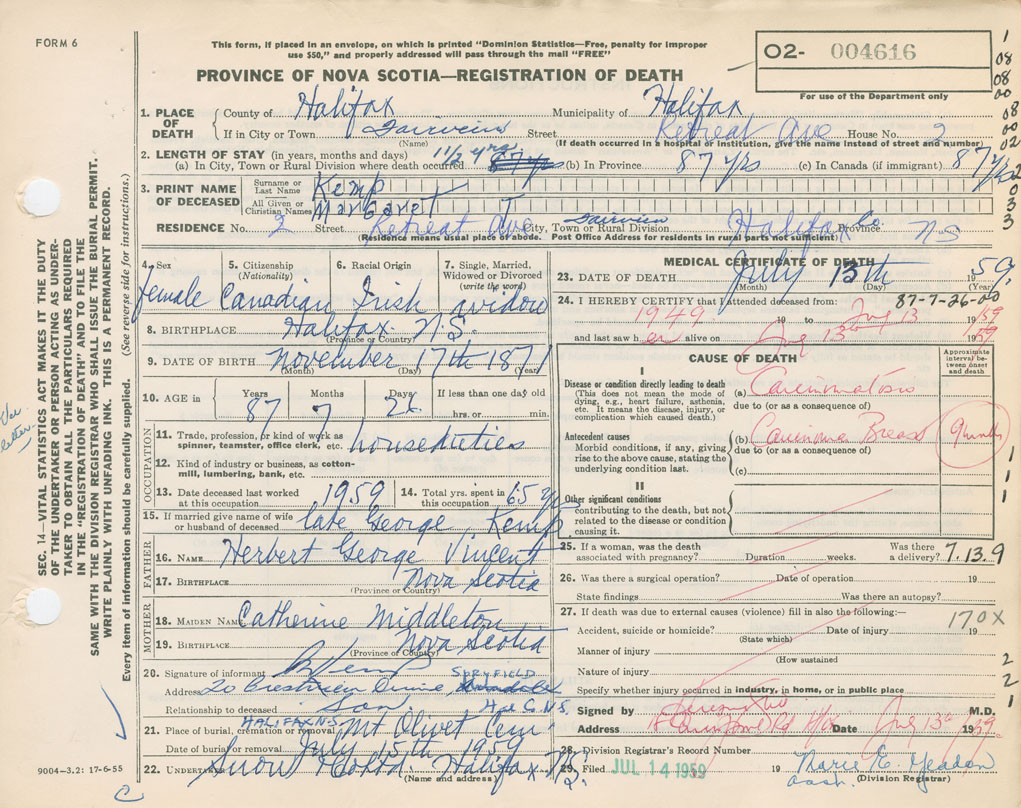 FORM 6
This form, if placed in an envelope, on which is printed "Dominion Statistics—Free, penalty for improper
use $50," and properly addressed will pass through the mail "FREE"
PROVINCE OF NOVA SCOTIA—REGISTRATION OF DEATH
O2- 004616
For use of the Department only
1. PLACE OF DEATH
County of Halifax Municipality of Halifax
If in City or Town Fairview Street Retreat Ave House No. 2
(Name) (If death occurred in a hospital or institution, give the name instead of street and number)
2. LENGTH OF STAY (in years, months and days)
(a) In City, Town or Rural Division where death occurred 11 1/2 yrs (b) In Province 87 yrs (c) In Canada (if immigrant) 87 yrs
3. PRINT NAME OF DECEASED
Surname or Last Name Kemp
All Given or Christian Names Margaret T
RESIDENCE No. 2 Street Retreat Ave City, Town or Rural Division Fairview Halifax Co. Province NS
(Residence means usual place of abode. Post Office Address for residents in rural parts not sufficient)
4. Sex female
5. Citizenship (Nationality) Canadian
6. Racial Origin Irish
7. Single, Married, Widowed or Divorced (write the word) widow
8. BIRTHPLACE Halifax N.S.
(Province or Country)
9. DATE OF BIRTH November 17th 187
(Month) (Day) (Year)
10. AGE in Years 87 Months 7 Days 26 If less than one day old hrs. or min.
OCCUPATION
11. Trade, profession, or kind of work as spinner, teamster, office clerk, etc. houseduties
12. Kind of industry or business, as cotton-mill, lumbering, bank, etc.
13. Date deceased last worked at this occupation 1959
14. Total yrs. spent in this occupation 65 yrs
15. If married give name of wife or husband of deceased late George Kemp
FATHER
16. NAME Herbert George Vincent
17. BIRTHPLACE Nova Scotia
(Province or Country)
MOTHER
18. MAIDEN NAME Catherine Middleton
19. BIRTHPLACE Nova Scotia
(Province or Country)
20. Signature of informant Kemp
Address 20 Drive SPRYFIELD
Relationship to deceased Son Hfx Co. N.S.
21. Place of burial, cremation or removal HALIFAX NS Mt Olivet Cem
Date of burial or removal July 15th 1959
22. UNDERTAKER Snow & Co Ltd. Halifax N.S.
(Name and address)
MEDICAL CERTIFICATE OF DEATH
23. DATE OF DEATH July 13th 1959
(Month) (Day) (Year)
24. I HEREBY CERTIFY that I attended deceased from: 87-7-26-00
1949 19 to July 13 1959
and last saw her alive on July 13th 1959
CAUSE OF DEATH
Approximate interval between onset and death
I
Disease or condition directly leading to death
(This does not mean the mode of dying, e.g., heart failure, asthenia, etc. It means the disease, injury, or complication which caused death.)
(a) Carcinomatosis
due to (or as a consequence of)
Antecedent causes
Morbid conditions, if any, giving rise to the above cause, stating the underlying condition last.
(b) Carcinoma Breast
due to (or as a consequence of)
(c)
II
Other significant conditions
contributing to the death, but not related to the disease or condition causing it.
25. If a woman, was the death associated with pregnancy? Duration weeks. Was there a delivery? 7.13.9
26. Was there a surgical operation? Date of operation 19
State findings Was there an autopsy?
27. If death was due to external causes (violence) fill in also the following:—
170X
Accident, suicide or homicide? Date of injury 19
(State which)
Manner of injury
(How sustained
Nature of injury
Specify whether injury occurred in industry, in home, or in public place
Signed by M.D.
Address Rd Hfx Date July 13th 1959
28. Division Registrar's Record Number
29. Filed JUL 14 1959 19 Marie E. Meadon
(Division Registrar)
SEC. 14—VITAL STATISTICS ACT MAKES IT THE DUTY
OF THE UNDERTAKER OR PERSON ACTING AS UNDERTAKER TO OBTAIN ALL THE PARTICULARS REQUIRED
IN THE "REGISTRATION OF DEATH" AND TO FILE THE
SAME WITH THE DIVISION REGISTRAR WHO SHALL ISSUE THE BURIAL PERMIT.
WRITE PLAINLY WITH UNFADING INK. THIS IS A PERMANENT RECORD.
Every item of information should be carefully supplied. (See reverse side for instructions.)
9004-3.2: 17-6-55
C
1
08
08
00
08
00
02
2
0
3
3
1
1
1
2
2
1